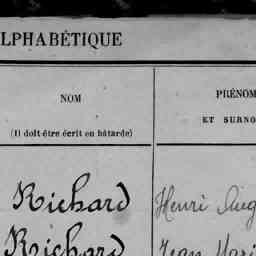 LPHABÉTIQUE
NOM
PRÉNOM
(Il doit être écrit en bâtarde)
ET SURNO
Richard Henri Aug
Richard Jean Mari